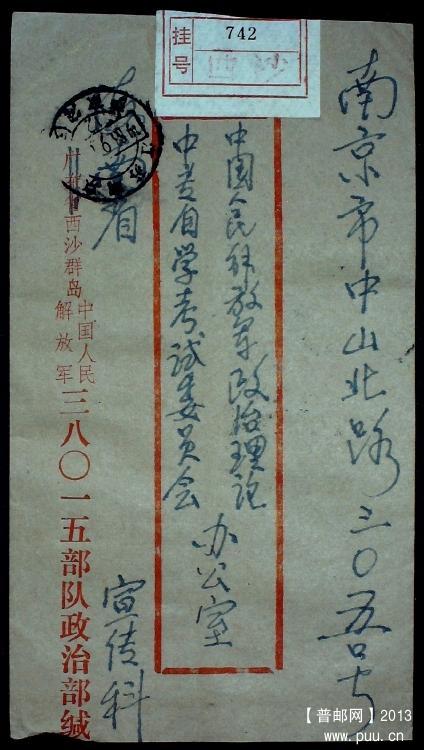 挂号
742
西沙
南京市中山北路三〇五号
中国人民解放军政治理论
中专自学考试委员会
办公室
省
西沙群岛
中国人民
解放军
三八〇一五部队政治部缄
宣传科
【普邮网】2013
www.puu.cn